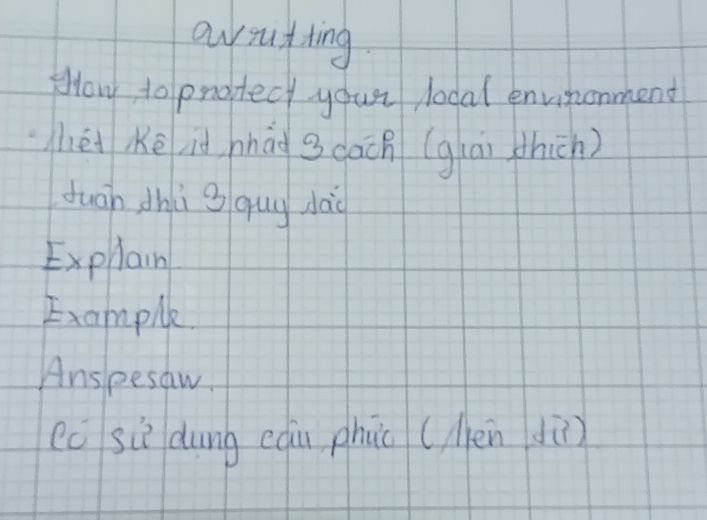 Writting.
How to protect your local environment
liệt kê ít nhất 3 cách (giải thích)
tuân thủ 3 quy tắc
Explain
Example.
Anspesaw.
Có sử dụng câu phức (liên từ)